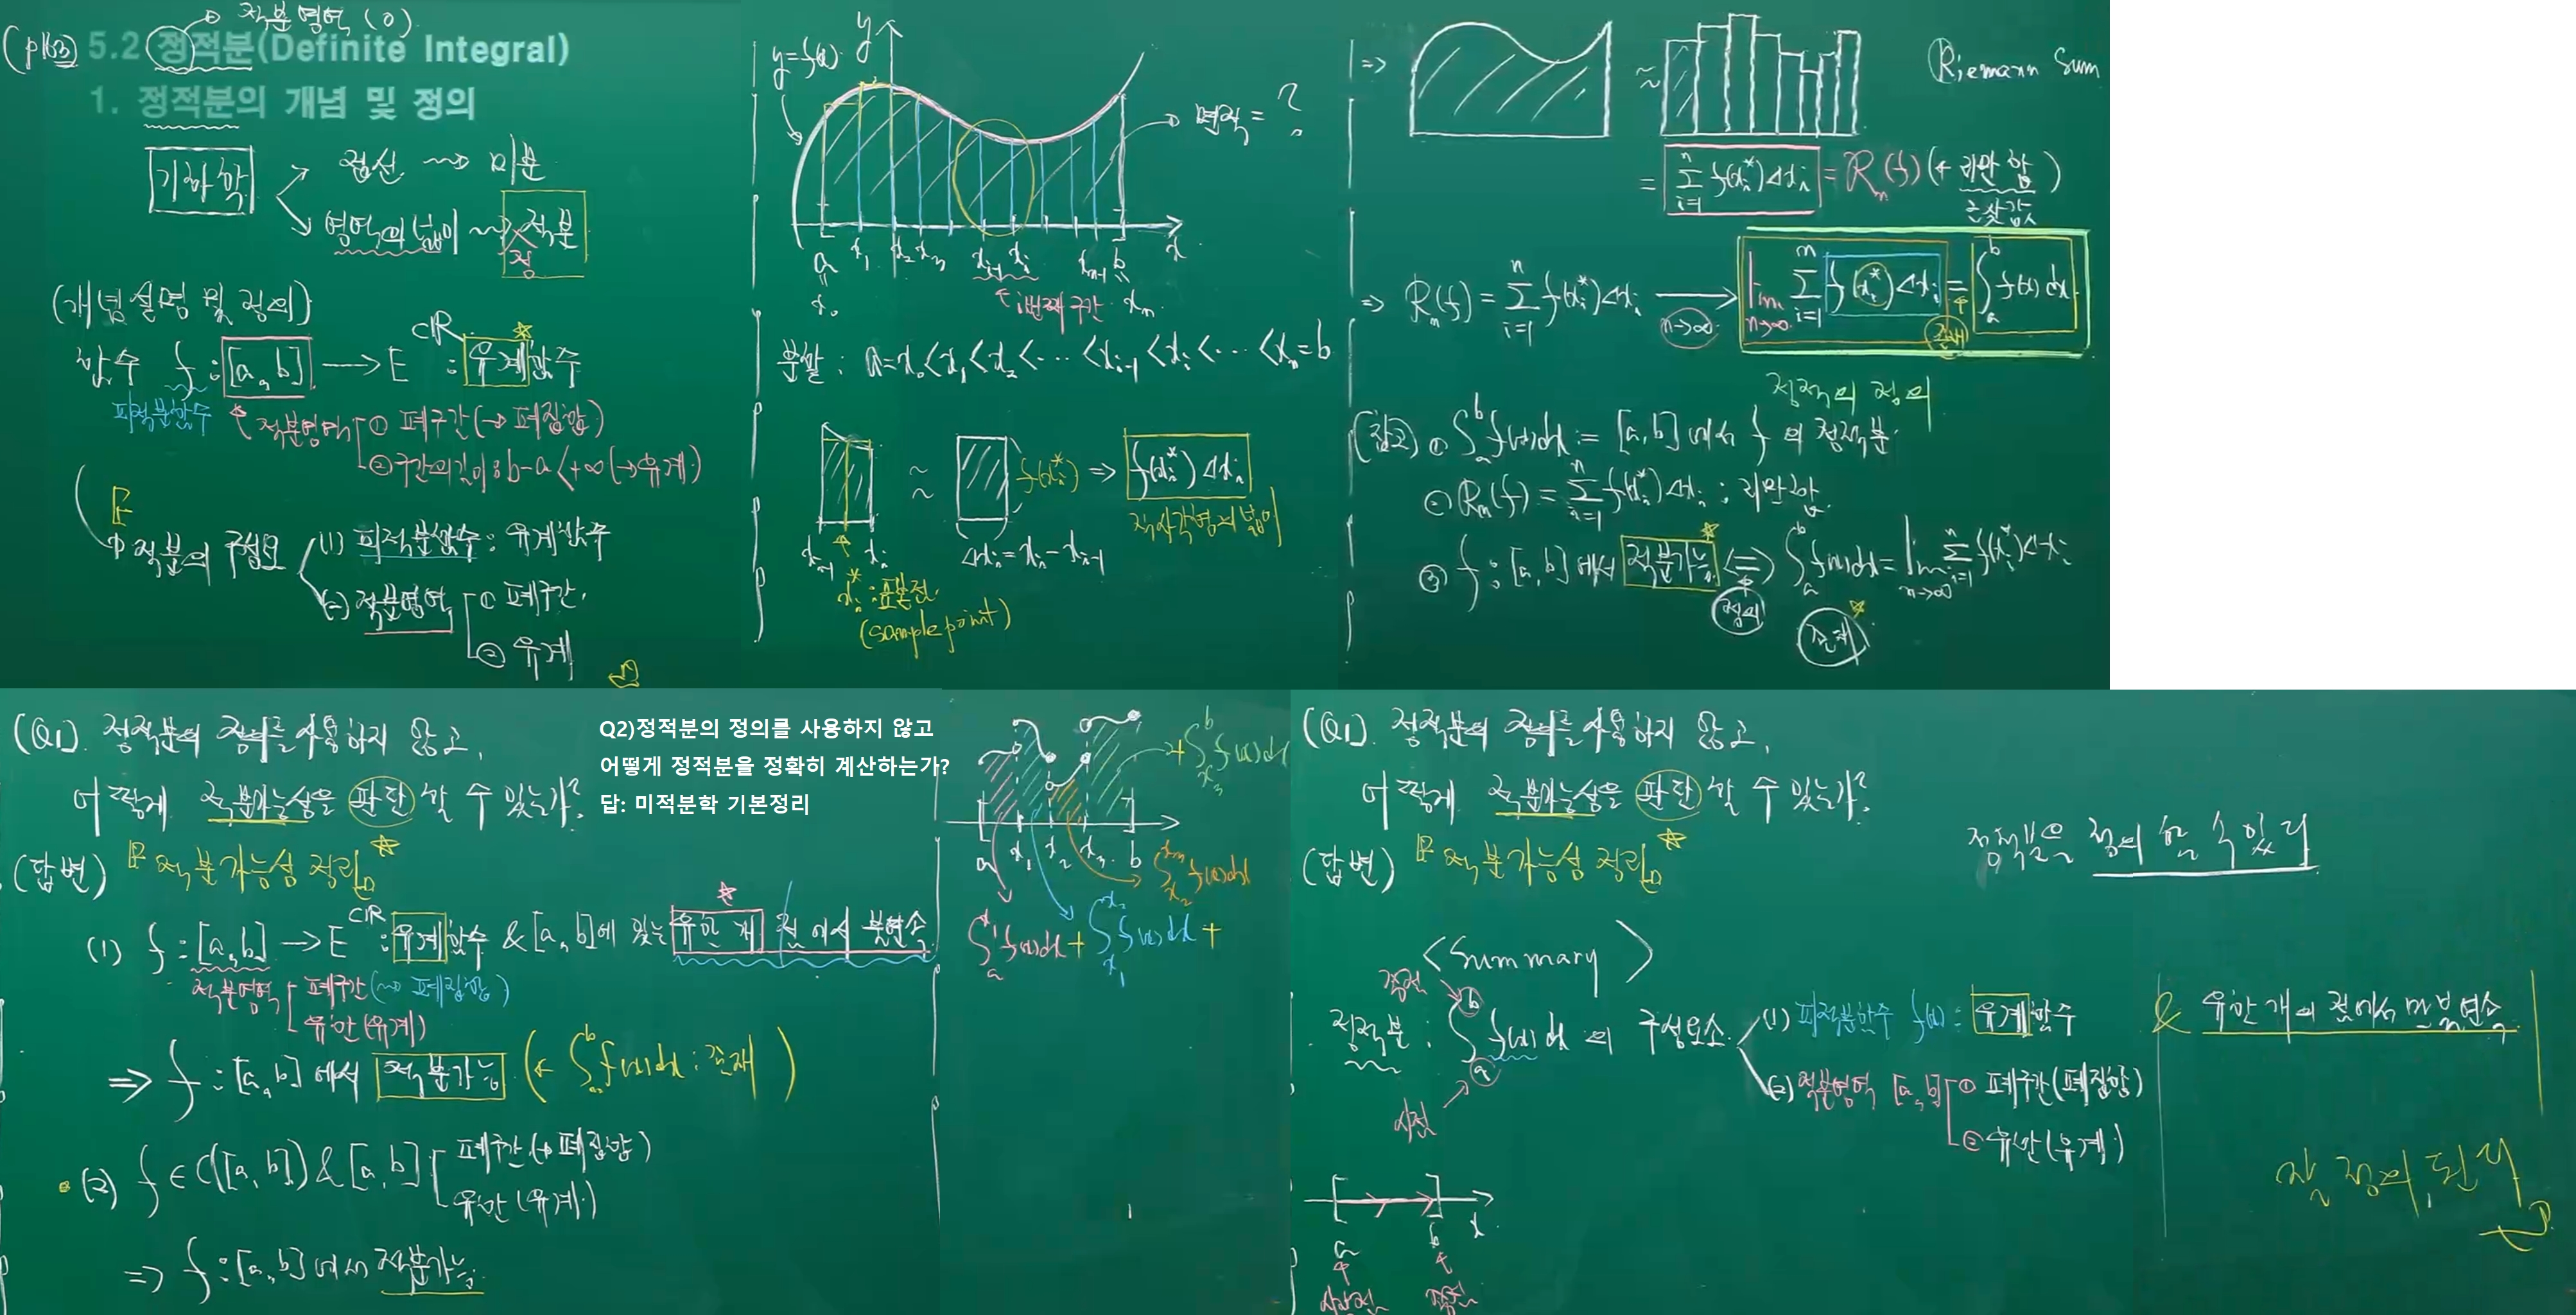 적분영역(0)
(p163) 5.2 정적분(Definite Integral)
1. 정적분의 개념 및 정의
기하학
접선 ~> 미분
영역의 넓이 ~> 적분
정
(개념설명 및 정의)
함수 f : [a, b] → E ⊂ℝ : 유계함수
피적분함수
적분영역 ① 폐구간 (→ 폐집합)
② 구간의 길이 : b-a < +∞ (→ 유계)
적분의 구성요소
(1) 피적분함수 : 유계함수
(2) 적분영역 ① 폐구간
② 유계
y=f(x)
y
면적 = ?
a x₁ x₂ x₃ xᵢ₋₁ xᵢ xₙ₋₁ b x
x₀ i번째 구간 xₙ
분할 : a=x₀<x₁<x₂<⋯<xᵢ₋₁<xᵢ<⋯<xₙ=b
≈ f(xᵢ*) ⇒ f(xᵢ*)Δxᵢ
직사각형의 넓이
xᵢ₋₁ xᵢ Δxᵢ=xᵢ-xᵢ₋₁
xᵢ* : 표본점
(sample point)
⇒ ≈ Riemann Sum
= Σᵢ₌₁ⁿ f(xᵢ*)Δxᵢ = Rₙ(f) (← 리만 합)
근삿값
⇒ Rₙ(f) = Σᵢ₌₁ⁿ f(xᵢ*)Δxᵢ → n→∞ lim n→∞ Σᵢ₌₁ⁿ f(xᵢ*)Δxᵢ = ∫ₐᵇ f(x)dx
존재
정적분의 정의
(참고) ① ∫ₐᵇ f(x)dx := [a, b]에서 f의 정적분
② Rₙ(f) = Σᵢ₌₁ⁿ f(xᵢ*)Δxᵢ : 리만합
③ f : [a, b]에서 적분가능 ⇔ ∫ₐᵇ f(x)dx = lim n→∞ Σᵢ₌₁ⁿ f(xᵢ*)Δxᵢ
정의
존재
(Q1). 정적분의 정의를 사용하지 않고,
어떻게 적분가능성을 판단할 수 있는가?
(답변) 적분가능성 정리
(1) f : [a, b] → E ⊂ℝ : 유계함수 & [a, b]에 있는 유한 개 점에서 불연속
적분영역 폐구간 (~> 폐집합)
유한 (유계)
⇒ f : [a, b]에서 적분가능 (← ∫ₐᵇ f(x)dx : 존재)
(2) f ∈ C([a, b]) & [a, b] 폐구간 (→ 폐집합)
유한 (유계)
⇒ f : [a, b]에서 적분가능
Q2)정적분의 정의를 사용하지 않고
어떻게 정적분을 정확히 계산하는가?
답: 미적분학 기본정리
+∫ₓ₃ᵇ f(x)dx
a x₁ x₂ x₃ b
∫ₓ₂ˣ³ f(x)dx
∫ₐˣ¹ f(x)dx + ∫ₓ₁ˣ² f(x)dx +
(Q1). 정적분의 정의를 사용하지 않고,
어떻게 적분가능성을 판단할 수 있는가?
(답변) 적분가능성 정리
정적분은 정의할 수 있다
<Summary>
끝점
정적분 : ∫ₐᵇ f(x)dx 의 구성요소
시점
(1) 피적분함수 f(x) : 유계함수 & 유한 개의 점에서만 불연속
(2) 적분영역 [a, b] ① 폐구간 (폐집합)
② 유한 (유계)
잘 정의된다
a b x
시작점 끝점